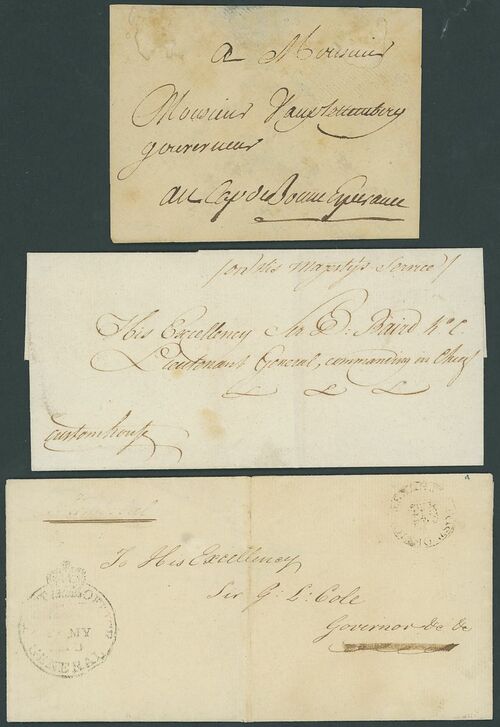 a Monsieur
Monsieur Vanplettemberg
gouverneur
au Cap de Bonne Esperance
/on His Majesty's Service/
His Excellency Sir D. Baird K.C.
Lieutenant General, commanding in Chief
customhouse
To His Excellency
Sir G. L. Cole
Governor &c &c
MY
GENERAL